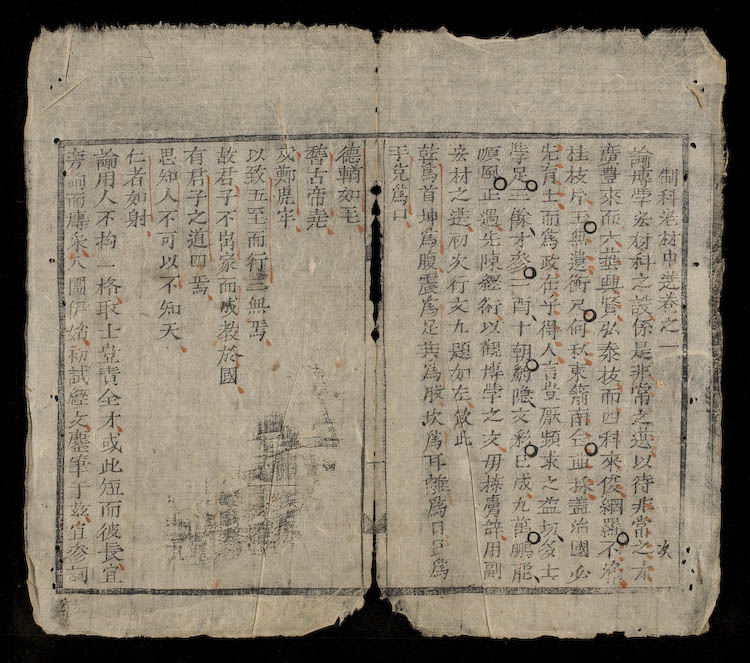 制科宏材中選卷之一
諭博學宏材科之設係是非常之選以待非常之才
廣豐來而六藝興賢弘泰拔而四科來俊綱羅不將
桂枝片玉無遺衡尺何私東箭南金並採盖治國必
先育士而為政在乎得人言登厥頻求之益須多士
學足三餘才參二酉十朝豹隐文彩已成九萬鵬能
順風正遇先陳經術以觀博學之文毋摭膚辞用副
宏材之選初次行文九題如左欽此
乾為首坤為腹震為足巽為股坎為耳離為目艮為
手兌為口
德輶如毛
舊古帝堯
戍鄭虎牢
以致五至而行三無焉
故君子不出家而成教於國
有君子之道四焉
思知人不可以不知天
仁者如射
諭用人不拘一格取士豈責全才或此短而彼長宜
旁詞而博采人圖伊始初試經文鏖筆于兹宜參詞
次